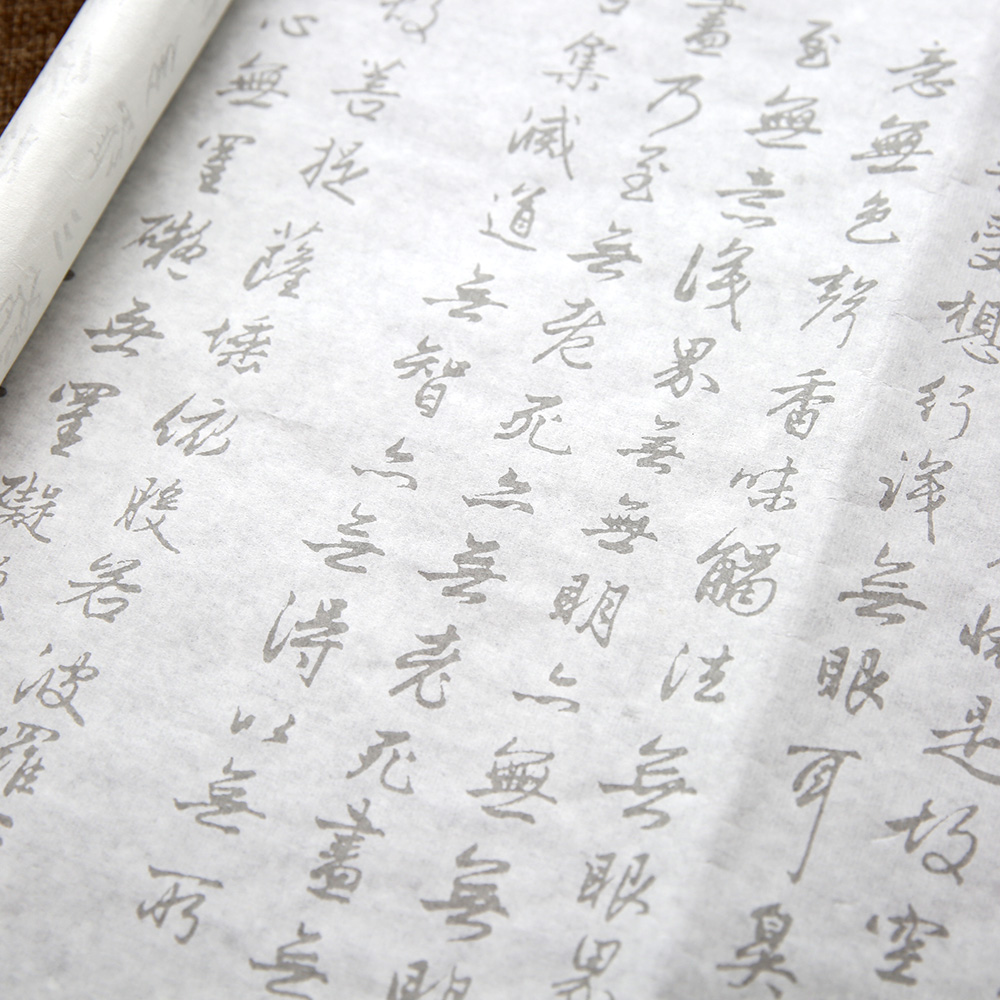 是故空
受想行識無眼耳鼻
意無色聲香味觸法無眼界
至無意識界無無明亦無無明
盡乃至無老死亦無老死盡無
集滅道無智亦無得以無所
故菩提薩埵依般若波羅
心無罣礙無罣礙